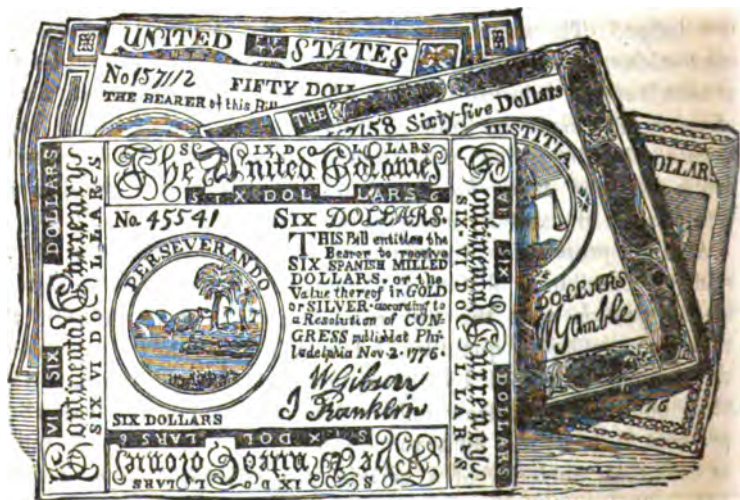 UNITED STATES
No 157112 FIFTY DOLL
THE BEARER of this Bill
THE
7158 Sixty-five Dollars
JUSTITIA
DOLLARS
WGamble
DOLLAR
SIX DOLLARS
The United Colonies
SIX DOLLARS 6
No. 45541 SIX DOLLARS.
THIS Bill entitles the
Bearer to receive
SIX SPANISH MILLED
DOLLARS, or the
Value thereof in GOLD
or SILVER according to
a Resolution of CON-
GRESS publishd at Phi-
ladelphia Nov. 2. 1776.
WGibson
J Franklin
PERSEVERANDO
SIX DOLLARS
VI SIX DOLLARS
Continental Currency
SIX VI DOLLARS
Continental Currency.
SIX. VI DOLLARS
VI SIX DOLLARS
SIX DOLLARS 6
The United Colonies
SIX DOLLARS